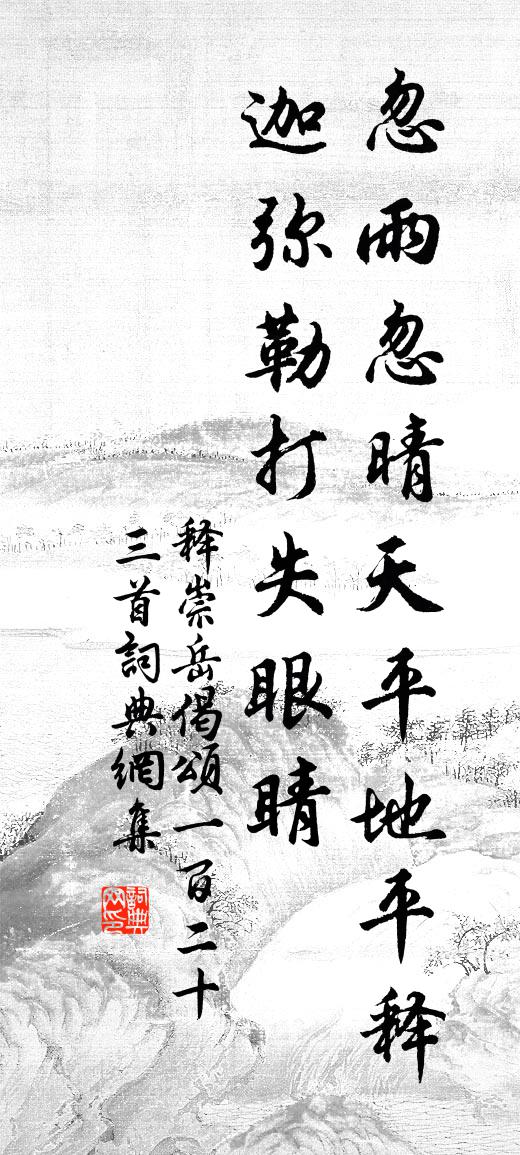 忽雨忽晴天平地平释
迦弥勒打失眼睛
释崇岳偈颂一百二十
三首詞典網集
詞典
网印